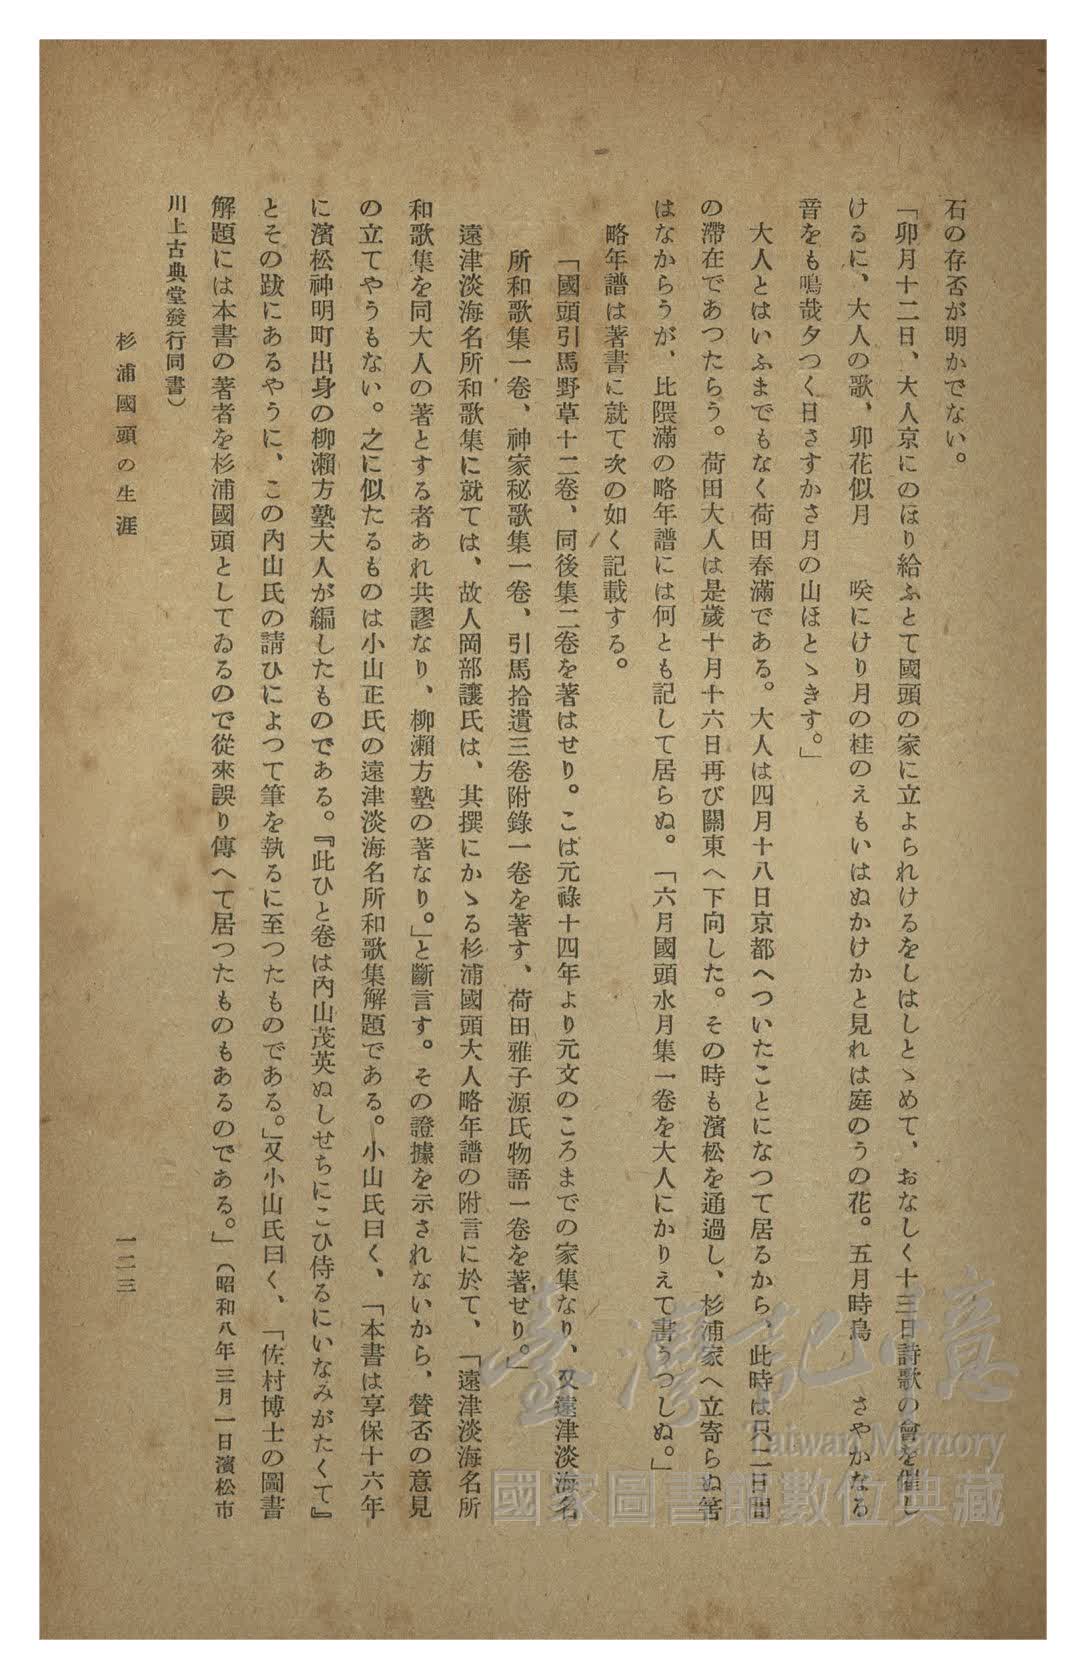 石の存否が明かでない。
「卯月十二日、大人京にのほり給ふとて國頭の家に立よられけるをしはしとゝめて、おなしく十三日詩歌の會を催し
けるに、大人の歌、卯花似月　　咲にけり月の桂のえもいはぬかけかと見れは庭のうの花。五月時鳥　　さやかなる
音をも鳴哉夕つく日さすかさ月の山ほとゝきす。」
大人とはいふまでもなく荷田春滿である。大人は四月十八日京都へついたことになつて居るから、此時は只二日間
の滯在であつたらう。荷田大人は是歲十月十六日再び關東へ下向した。その時も濱松を通過し、杉浦家へ立寄らぬ筈
はなからうが、比隈滿の略年譜には何とも記して居らぬ。「六月國頭水月集一卷を大人にかりえて書うつしぬ。」
略年譜は著書に就て次の如く記載する。
「國頭引馬野草十二卷、同後集二卷を著はせり。こは元祿十四年より元文のころまでの家集なり、又遠津淡海名
所和歌集一卷、神家秘歌集一卷、引馬拾遺三卷附錄一卷を著す、荷田雅子源氏物語一卷を著せり。」
遠津淡海名所和歌集に就ては、故人岡部讓氏は、其撰にかゝる杉浦國頭大人略年譜の附言に於て、「遠津淡海名所
和歌集を同大人の著とする者あれ共謬なり、柳瀨方塾の著なり。」と斷言す。その證據を示されないから、贊否の意見
の立てやうもない。之に似たるものは小山正氏の遠津淡海名所和歌集解題である。小山氏曰く、「本書は享保十六年
に濱松神明町出身の柳瀨方塾大人が編したものである。『此ひと卷は內山茂英ぬしせちにこひ侍るにいなみがたくて』
とその跋にあるやうに、この內山氏の請ひによつて筆を執るに至つたものである。」又小山氏曰く、「佐村博士の圖書
解題には本書の著者を杉浦國頭としてゐるので從來誤り傳へて居つたものもあるのである。」（昭和八年三月一日濱松市
川上古典堂發行同書）
杉浦國頭の生涯
一二三
臺灣記憶
Taiwan Memory
國家圖書館數位典藏